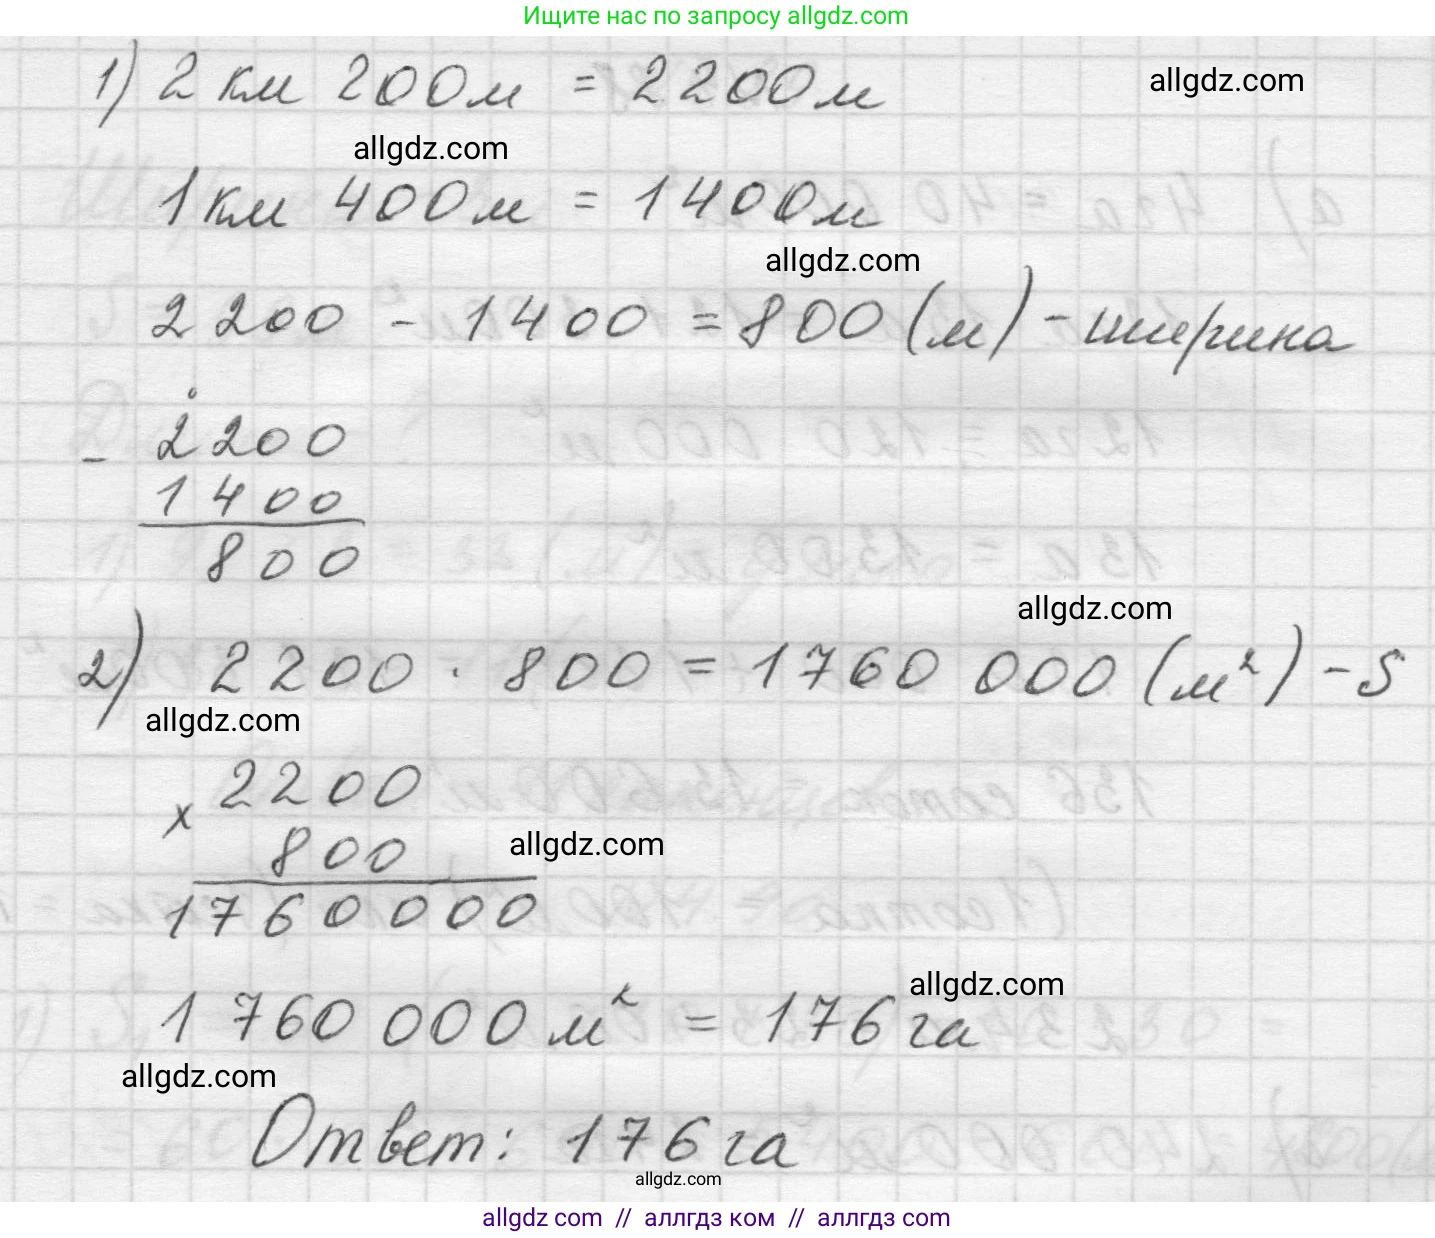 Ищите нас по запросу allgdz.com
1) 2 км 200 м = 2200 м
allgdz.com
allgdz.com
1 км 400 м = 1400 м
allgdz.com
2200 - 1400 = 800 (м) - ширина
- 2200
1400
800
allgdz.com
2) 2200 · 800 = 1760 000 (м²) - S
allgdz.com
x 2200
800
allgdz.com
1760000
allgdz.com
1 760 000 м² = 176 га
allgdz.com
Ответ: 176 га
allgdz.com
allgdz com // аллгдз ком // аллгдз com